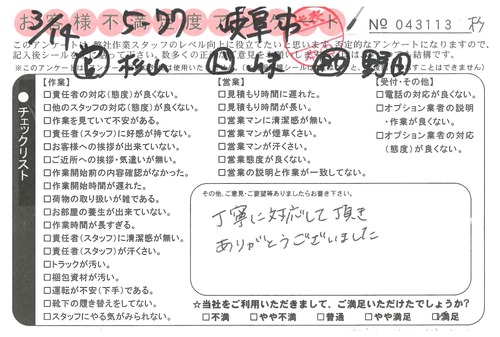 お客様不満足度アンケート
№ 043113
3/14 5-97 岐阜市
このアンケートは、弊社作業スタッフのレベル向上に役立てたいと思います。否定的なアンケートになりますので、
【作業】
□責任者の対応(態度)が良くない。
□他のスタッフの対応(態度)が良くない。
□作業を見ていて不安がある。
□責任者(スタッフ)に好感が持てない。
□お客様への挨拶が出来ていない。
□ご近所への挨拶・気遣いが無い。
□作業開始前の内容確認がなかった。
□作業開始時間が遅れた。
□荷物の取り扱いが雑である。
□お部屋の養生が出来ていない。
□作業時間が長すぎる。
□責任者(スタッフ)に清潔感が無い。
□責任者(スタッフ)が汗くさい。
□トラックが汚い。
□梱包資材が汚い。
□運転が不安(下手)である。
□靴下の履き替えをしてない。
□スタッフにやる気がみられない。
【営業】
□見積もり時間に遅れた。
□見積もり時間が長い。
□営業マンに清潔感が無い。
□営業マンが煙草くさい。
□営業マンが汗くさい。
□営業態度が良くない。
□営業の説明と作業が一致してない。
【受付・その他】
□電話の対応が良くない。
□オプション業者の説明
・作業が良くない。
□オプション業者の対応
(態度)が良くない。
チェックリスト
その他、ご意見・ご要望等ありましたらお書き下さい。
丁寧に対応して頂き
ありがとうございました
☆当社をご利用いただきまして、ご満足いただけたでしょうか?
□不満 □やや不満 □普通 □やや満足 ☑満足